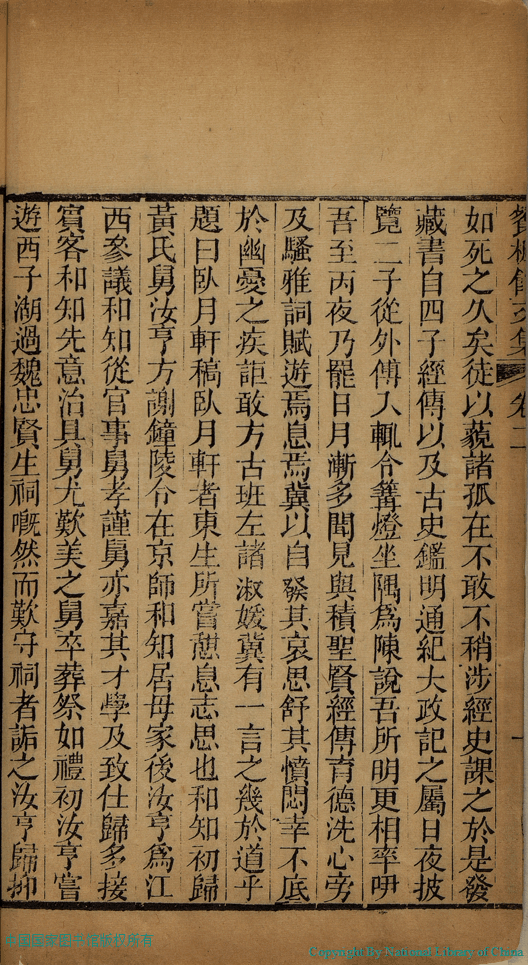 餐楓館文集 卷二 一
如死之久矣徒以藐諸孤在不敢不稍涉經史課之於是發
藏書自四子經傳以及古史鑑明通紀大政記之屬日夜披
覽二子從外傅入輒令篝燈坐隅爲陳說吾所明更相率呷
吾至丙夜乃罷日月漸多聞見與積聖賢經傳育德洗心旁
及騷雅詞賦遊焉息焉冀以自發其哀思舒其憤悶幸不底
於幽憂之疾詎敢方古班左諸淑媛冀有一言之幾於道乎
題曰臥月軒稿臥月軒者東生所嘗憩息志思也和知初歸
黃氏舅汝亨方謝鐘陵令在京師和知居母家後汝亨爲江
西參議和知從官事舅孝謹舅亦嘉其才學及致仕歸多接
賓客和知先意治具舅尤歎美之舅卒葬祭如禮初汝亨嘗
遊西子湖過魏忠賢生祠嘅然而歎守祠者詬之汝亨歸抑
中国国家图书馆版权所有
Copyright By National Library of China